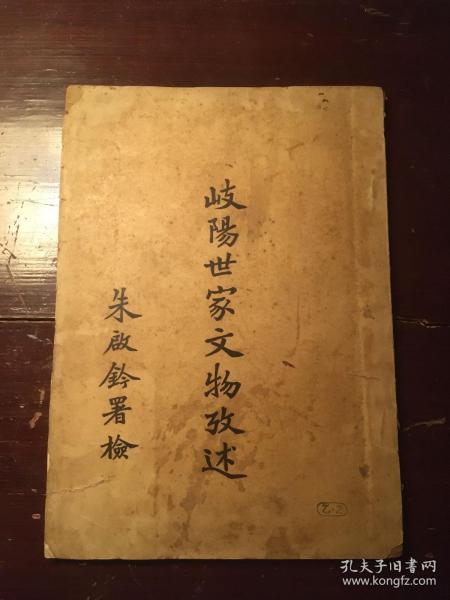 岐陽世家文物攷述
朱啟鈐署檢
孔夫子旧书网
www.kongfz.com